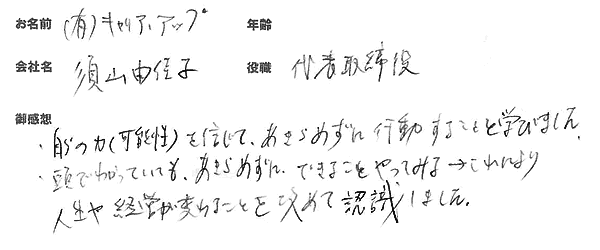 お名前 (有)キャリア、アップ 年齢
会社名 須山由佳子 役職 代表取締役
御感想
・自分の力(可能性)を信じて、あきらめずに行動することを学びました。
・頭でわかっていても、あきらめずに、できることをやってみる→これにより
人生や経営が変わることを改めて認識しました。